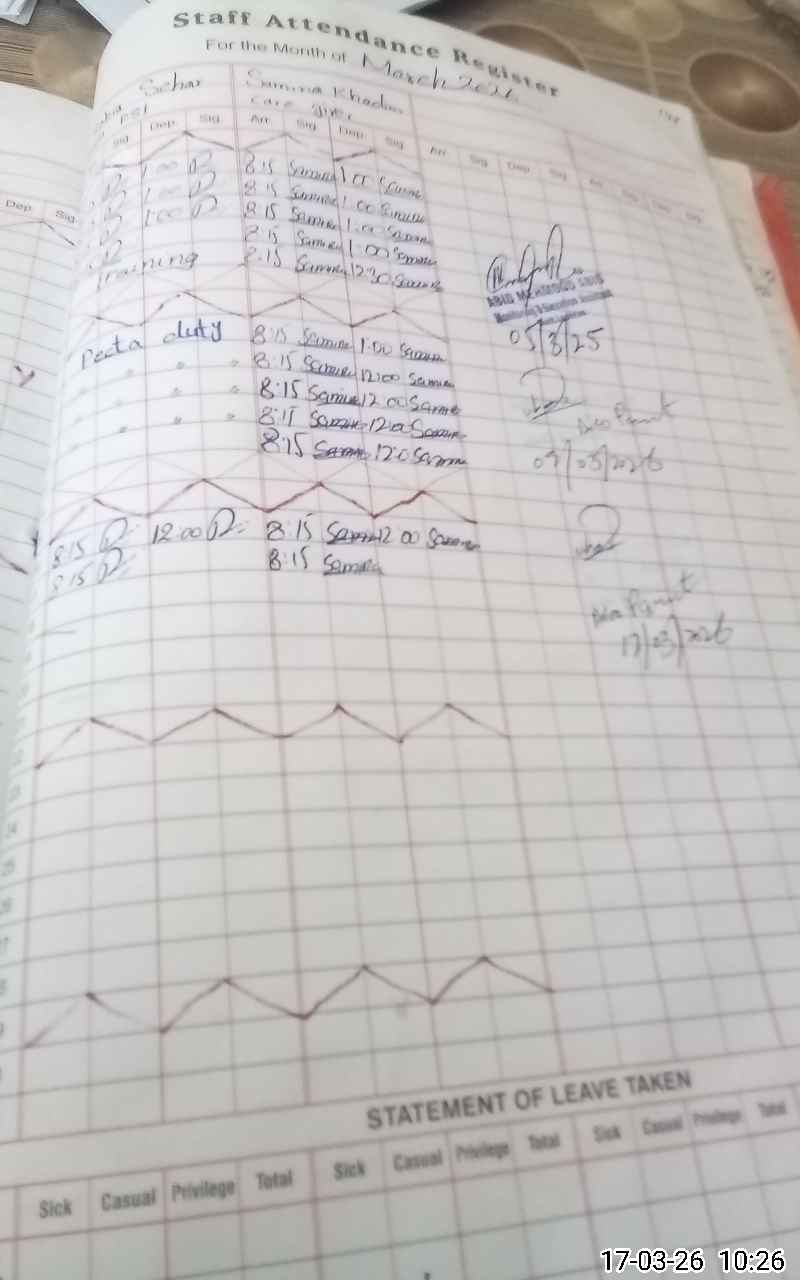 Staff Attendance Register
For the Month of March 2026
Sehar Samina Khadim
care giver
Sig Dep. Sig. Arr. Sig. Dep. Sig Arr. Sig Dep Sig Arr. Sig Dep Sig
Dep Sig
1:00 8:15 Samina 1:00 Samina
1:00 8:15 Samina 1:00 Samina
1:00 8:15 Samina 1:00 Samina
8:15 Samina 1:00 Samina
Training 8:15 Samina 12:30 Samina
ABID MEHMOOD
05/3/25
Pecta duty 8:15 Samina 1:00 Samina
" " " 8:15 Samina 12:00 Samina
" " " 8:15 Samina 12:00 Samina
" " " 8:15 Samina 12:0 Samina
8:15 Samina 12:0 Samina
09/03/2026
8:15 12:00 8:15 Samina 12:00 Samina
8:15 8:15 Samina
17/03/2026
24
25
26
STATEMENT OF LEAVE TAKEN
Sick Casual Privilege Total Sick Casual Privilege Total Sick Casual Privilege Total
17-03-26 10:26